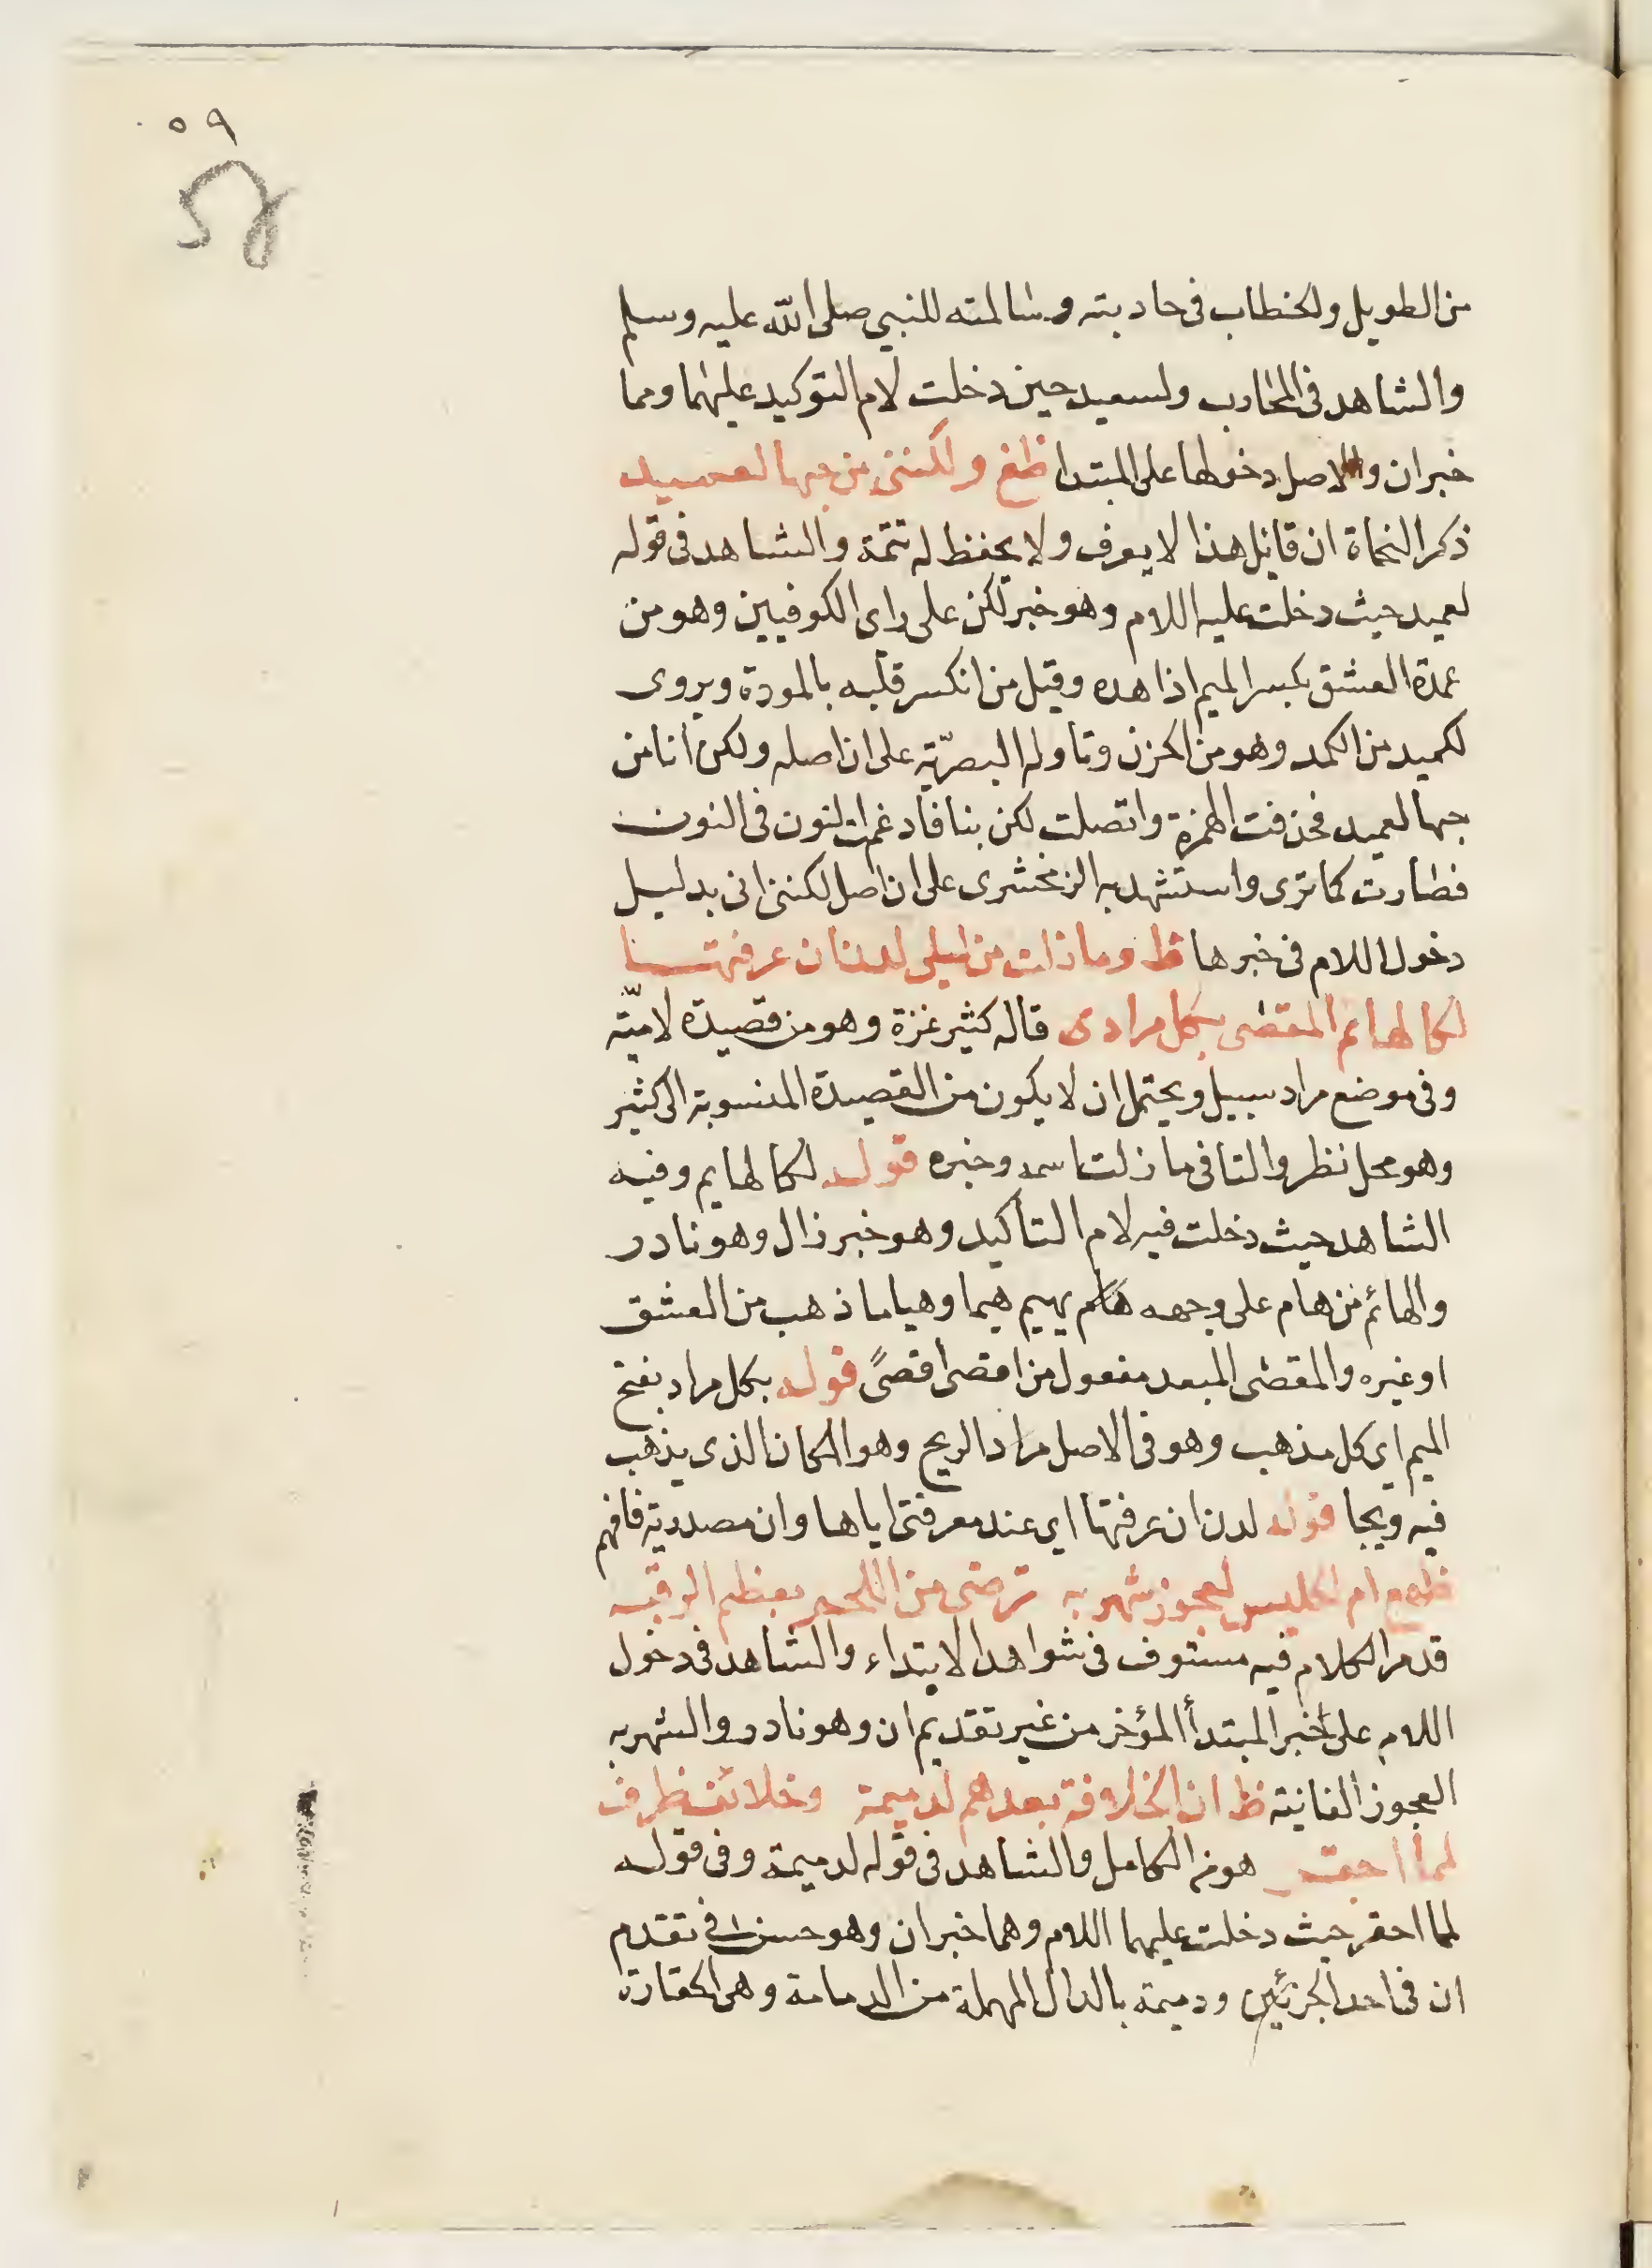 ٥٩
من الطويل والخطاب في حاربته وسالمته للنبي صلى الله عليه وسلم
والشاهد في المحارب ولسعيد حين دخلت لام التوكيد عليهما وهما
خبران والاصل دخولها على المبتدا ظغ ولكنني من حبها لعميد
ذكر النحاة ان قايل هذا لا يعرف ولا يحفظ له تتمة والشاهد في قوله
لعميد حيث دخلت عليه اللام وهو خبر لكن على راى الكوفيين وهو من
عمدة العشق بكسر الميم اذا هده وقيل من انكسر قلبه بالمودة ويروى
لكميد من الكمد وهو من الحزن وتاوله البصريّة على ان اصله ولكن أنا من
حبها لعميد فحذفت الهمزة واتصلت لكن بنا فادغمت النون في النون
فصارت كما ترى واستشهد به الزمخشرى على ان اصل لكنني انى بدليل
دخول اللام في خبرها ظ وما زلت من ليلى لدن ان عرفتها
لكالهائم المقصى بكل مرادى قاله كثير عزة وهو من قصيدة لاميّة
وفي موضع مراد سبيل ويحتمل ان لا يكون من القصيدة المنسوبة الى كثير
وهو محل نظر والتا في ما زلت اسمه وخبره قوله لكالهايم وفيه
الشاهد حيث دخلت فيه لام التأكيد وهو خبر زال وهو نادر
والهائم من هام على وجهه هام يهيم هيما وهياما ذهب من العشق
او غيره والمقصى المبعد مفعول من اقصى أقصىً قوله بكل مراد بفتح
الميم اى كل مذهب وهو في الاصل مراد الريح وهو المكان الذى يذهب
فيه ويجا قوله لدن ان عرفتها اى عند معرفتى اياها وان مصدرية فافهم
ظهع ام الحليس لعجوز شهربه ترضى من اللحم بعظم الرقبه
قد مر الكلام فيه مستوف في شواهد الابتداء والشاهد في دخول
اللام على خبر المبتدأ المؤخر من غير تقديم ان وهو نادر والشهربه
العجوز الفانية ظ ان الخلافة بعدهم لدميمة وخلائف ظرف
لما احقر هو من الكامل والشاهد في قوله لدميمة وفي قوله
لما احقر حيث دخلت عليهما اللام وهما خبران وهو حسن في تقدم
ان في احد الجزئين ودميمة بالدال المهملة من الدمامة وهى الحقارة